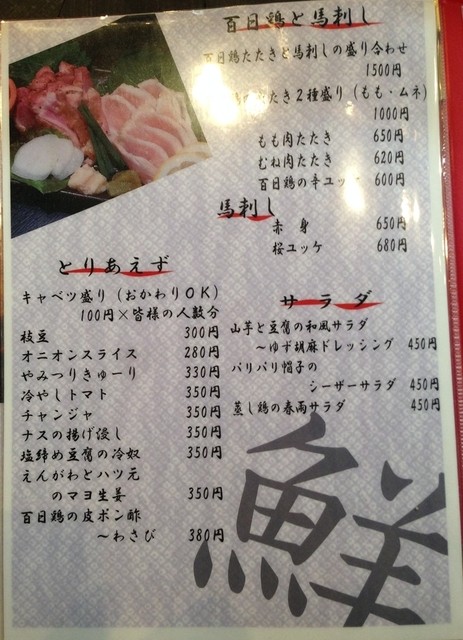 百日鶏と馬刺し
百日鶏たたきと馬刺しの盛り合わせ
1500円
たたき２種盛り（もも・ムネ）
1000円
もも肉たたき 650円
むね肉たたき 620円
百日鶏の辛ユッケ 600円
馬刺し
赤身 650円
桜ユッケ 680円
とりあえず
キャベツ盛り（おかわりＯＫ）
100円×皆様の人数分
枝豆 300円
オニオンスライス 280円
やみつりきゅーり 330円
冷やしトマト 350円
チャンジャ 350円
ナスの揚げ浸し 350円
塩締め豆腐の冷奴 350円
えんがわとハツ元
のマヨ生姜 350円
百日鶏の皮ポン酢
～わさび 380円
サラダ
山芋と豆腐の和風サラダ
～ゆず胡麻ドレッシング 450円
パリパリ帽子の
シーザーサラダ 450円
蒸し鶏の春雨サラダ 450円
鮮